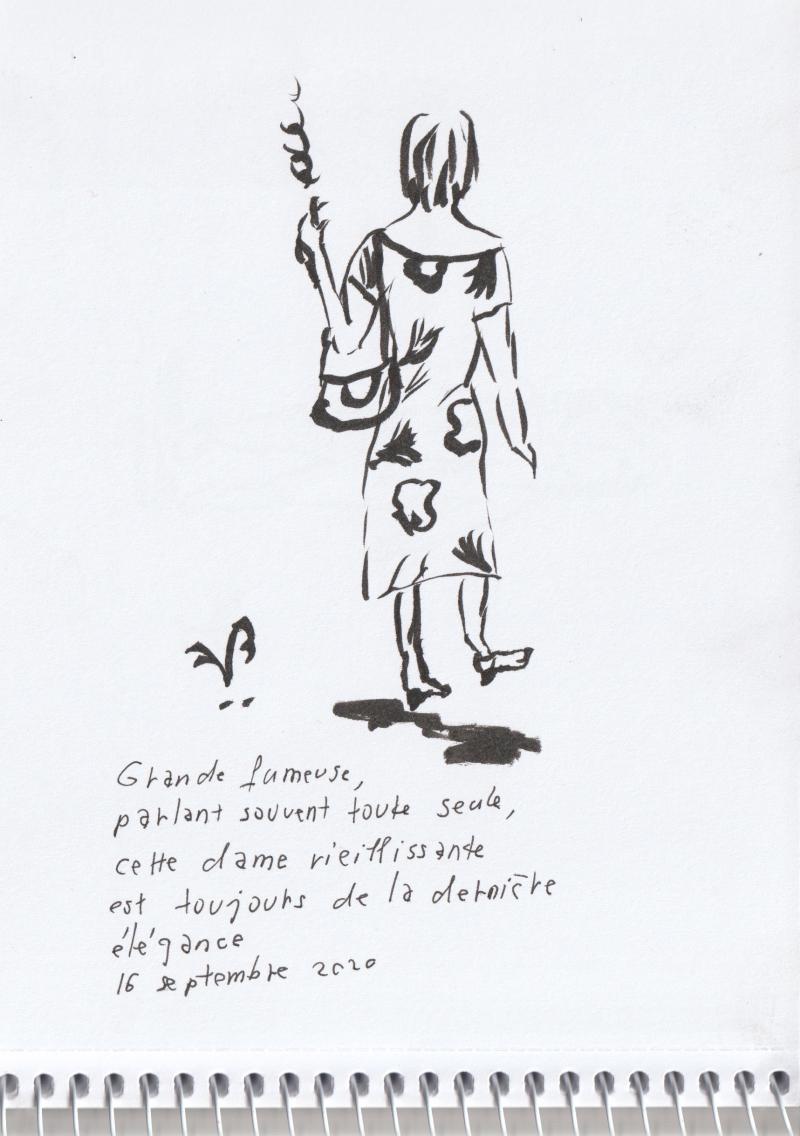 Grande fumeuse,
parlant souvent toute seule,
cette dame vieillissante
est toujours de la dernière
élégance
16 septembre 2020